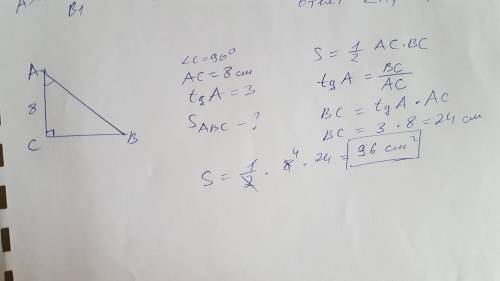 B1
A
8
C
B
∠C=90°
AC=8 cm
tgA=3
S_ABC - ?
S = 1/2 AC·BC
tgA = BC/AC
BC = tgA · AC
BC = 3 · 8 = 24 cm
S = 1/2 · 8 4 · 24 = 96 cm²